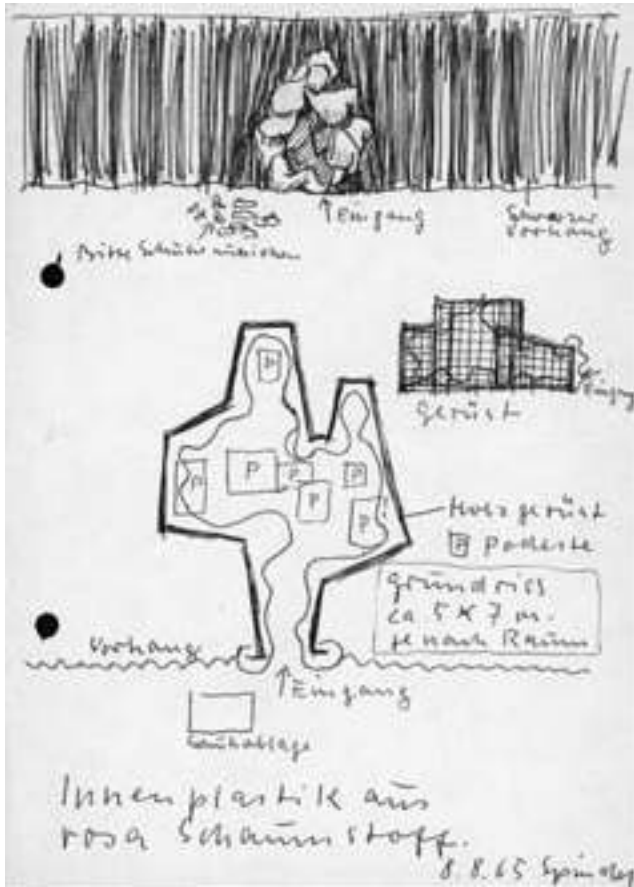 ↑ Eingang
Schwarzer
Vorhang
Bitte Schuhe ausziehen
Eingang
Gerüst
P
P
P
P
P
P
P
Holzgerüst
P Podeste
Grundriss
ca 5 x 7 m.
je nach Raum
Vorhang
↑ Eingang
Schuhablage
Innenplastik aus
rosa Schaumstoff.
8.8.65